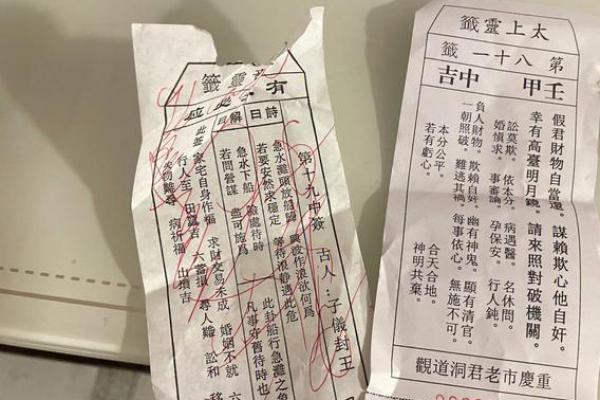 太上靈籤
第八十一籤
壬甲 中吉
假君財物自當還。謀賴欺心他自奸。
幸有高臺明月鏡。請來照對破機關。
訟莫欺。依本分。病遇醫。名休問。
婚慎求。事審論。孕保安。行人鈍。
負人財物。欺賴自奸。幽有神鬼。顯有清官。
一朝照破。難逃其禍。每事依心。無施不可。
本分公平。合天合地。
若有虧心。神明共棄。
重慶市老君洞道觀
靈籤
有
詩曰
解曰
第十九中簽 古人:子儀封王
急水灘頭放船歸
若要安然求穩定 等待浪靜過此危
急水下船 險處待時
若問營謀 盡可施為
此卦船行急灘之象
凡事守舊待時也
家宅自身作福 求財交易未成 婚姻不就
行人至 田蠶吉 六畜損 尋人難 訟和
病祈福 出墳吉